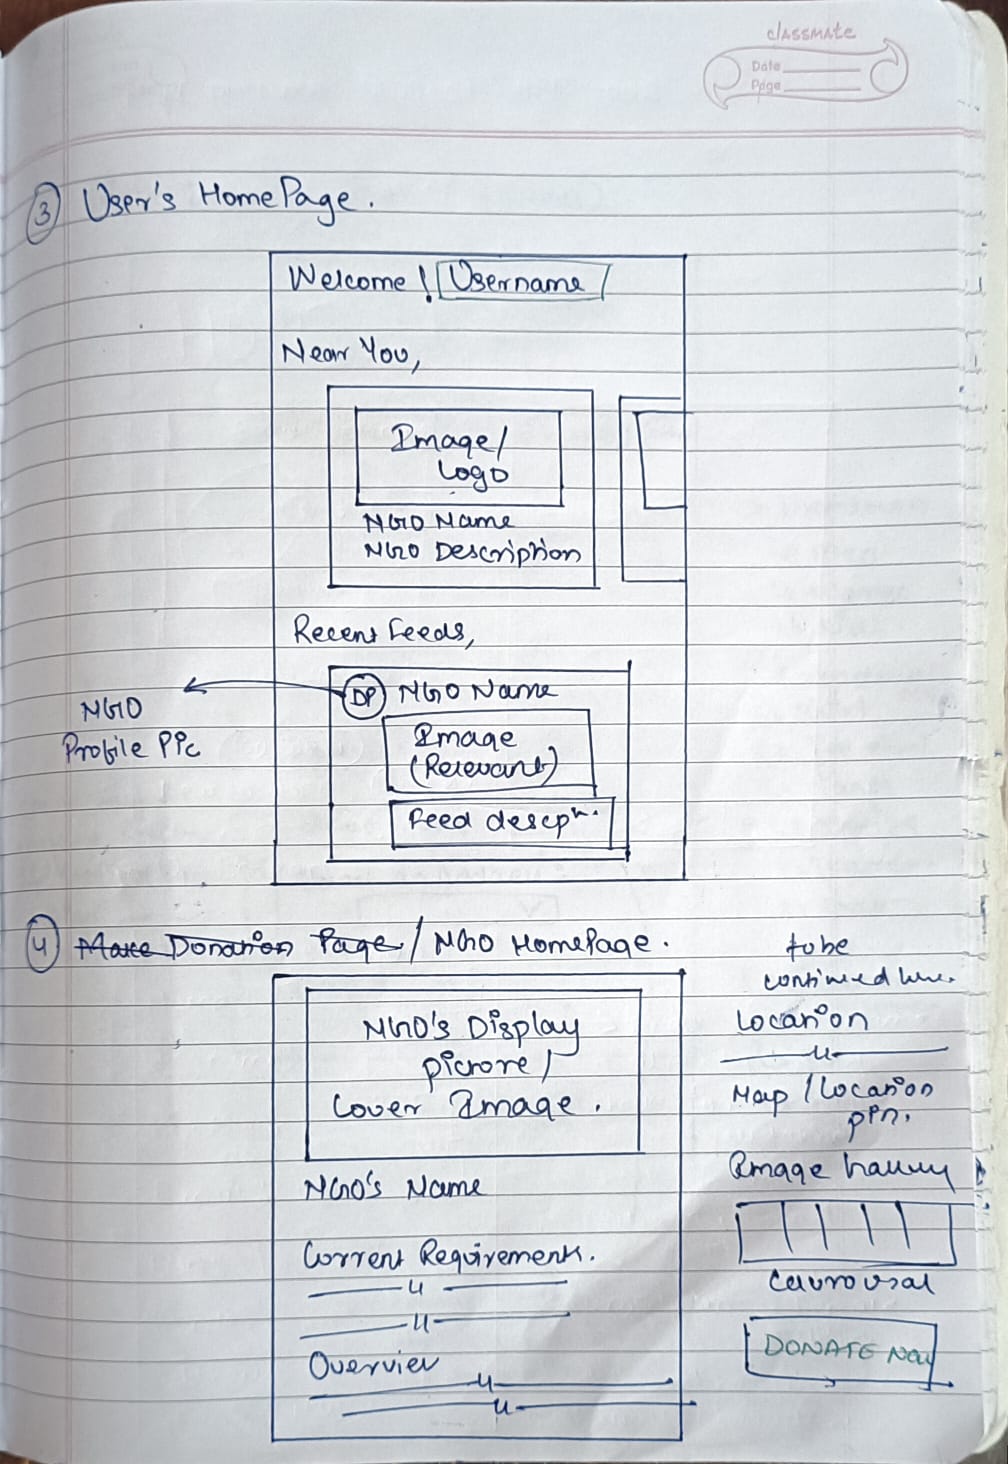 classmate
Date
Page
3 User's HomePage.
Welcome! Username
Near You,
Image/
Logo
NGO Name
NGO Description
Recent Feeds,
DP NGO Name
NGO
Profile Pic
Image
(Relevant)
Feed descpn.
4 Make Donation Page / NGO HomePage.
NGO's Display
picture /
Cover Image.
NGO's Name
Current Requirements.
Overview
to be
continued here.
Location
Map / Location
pin.
Image
DONATE NOW